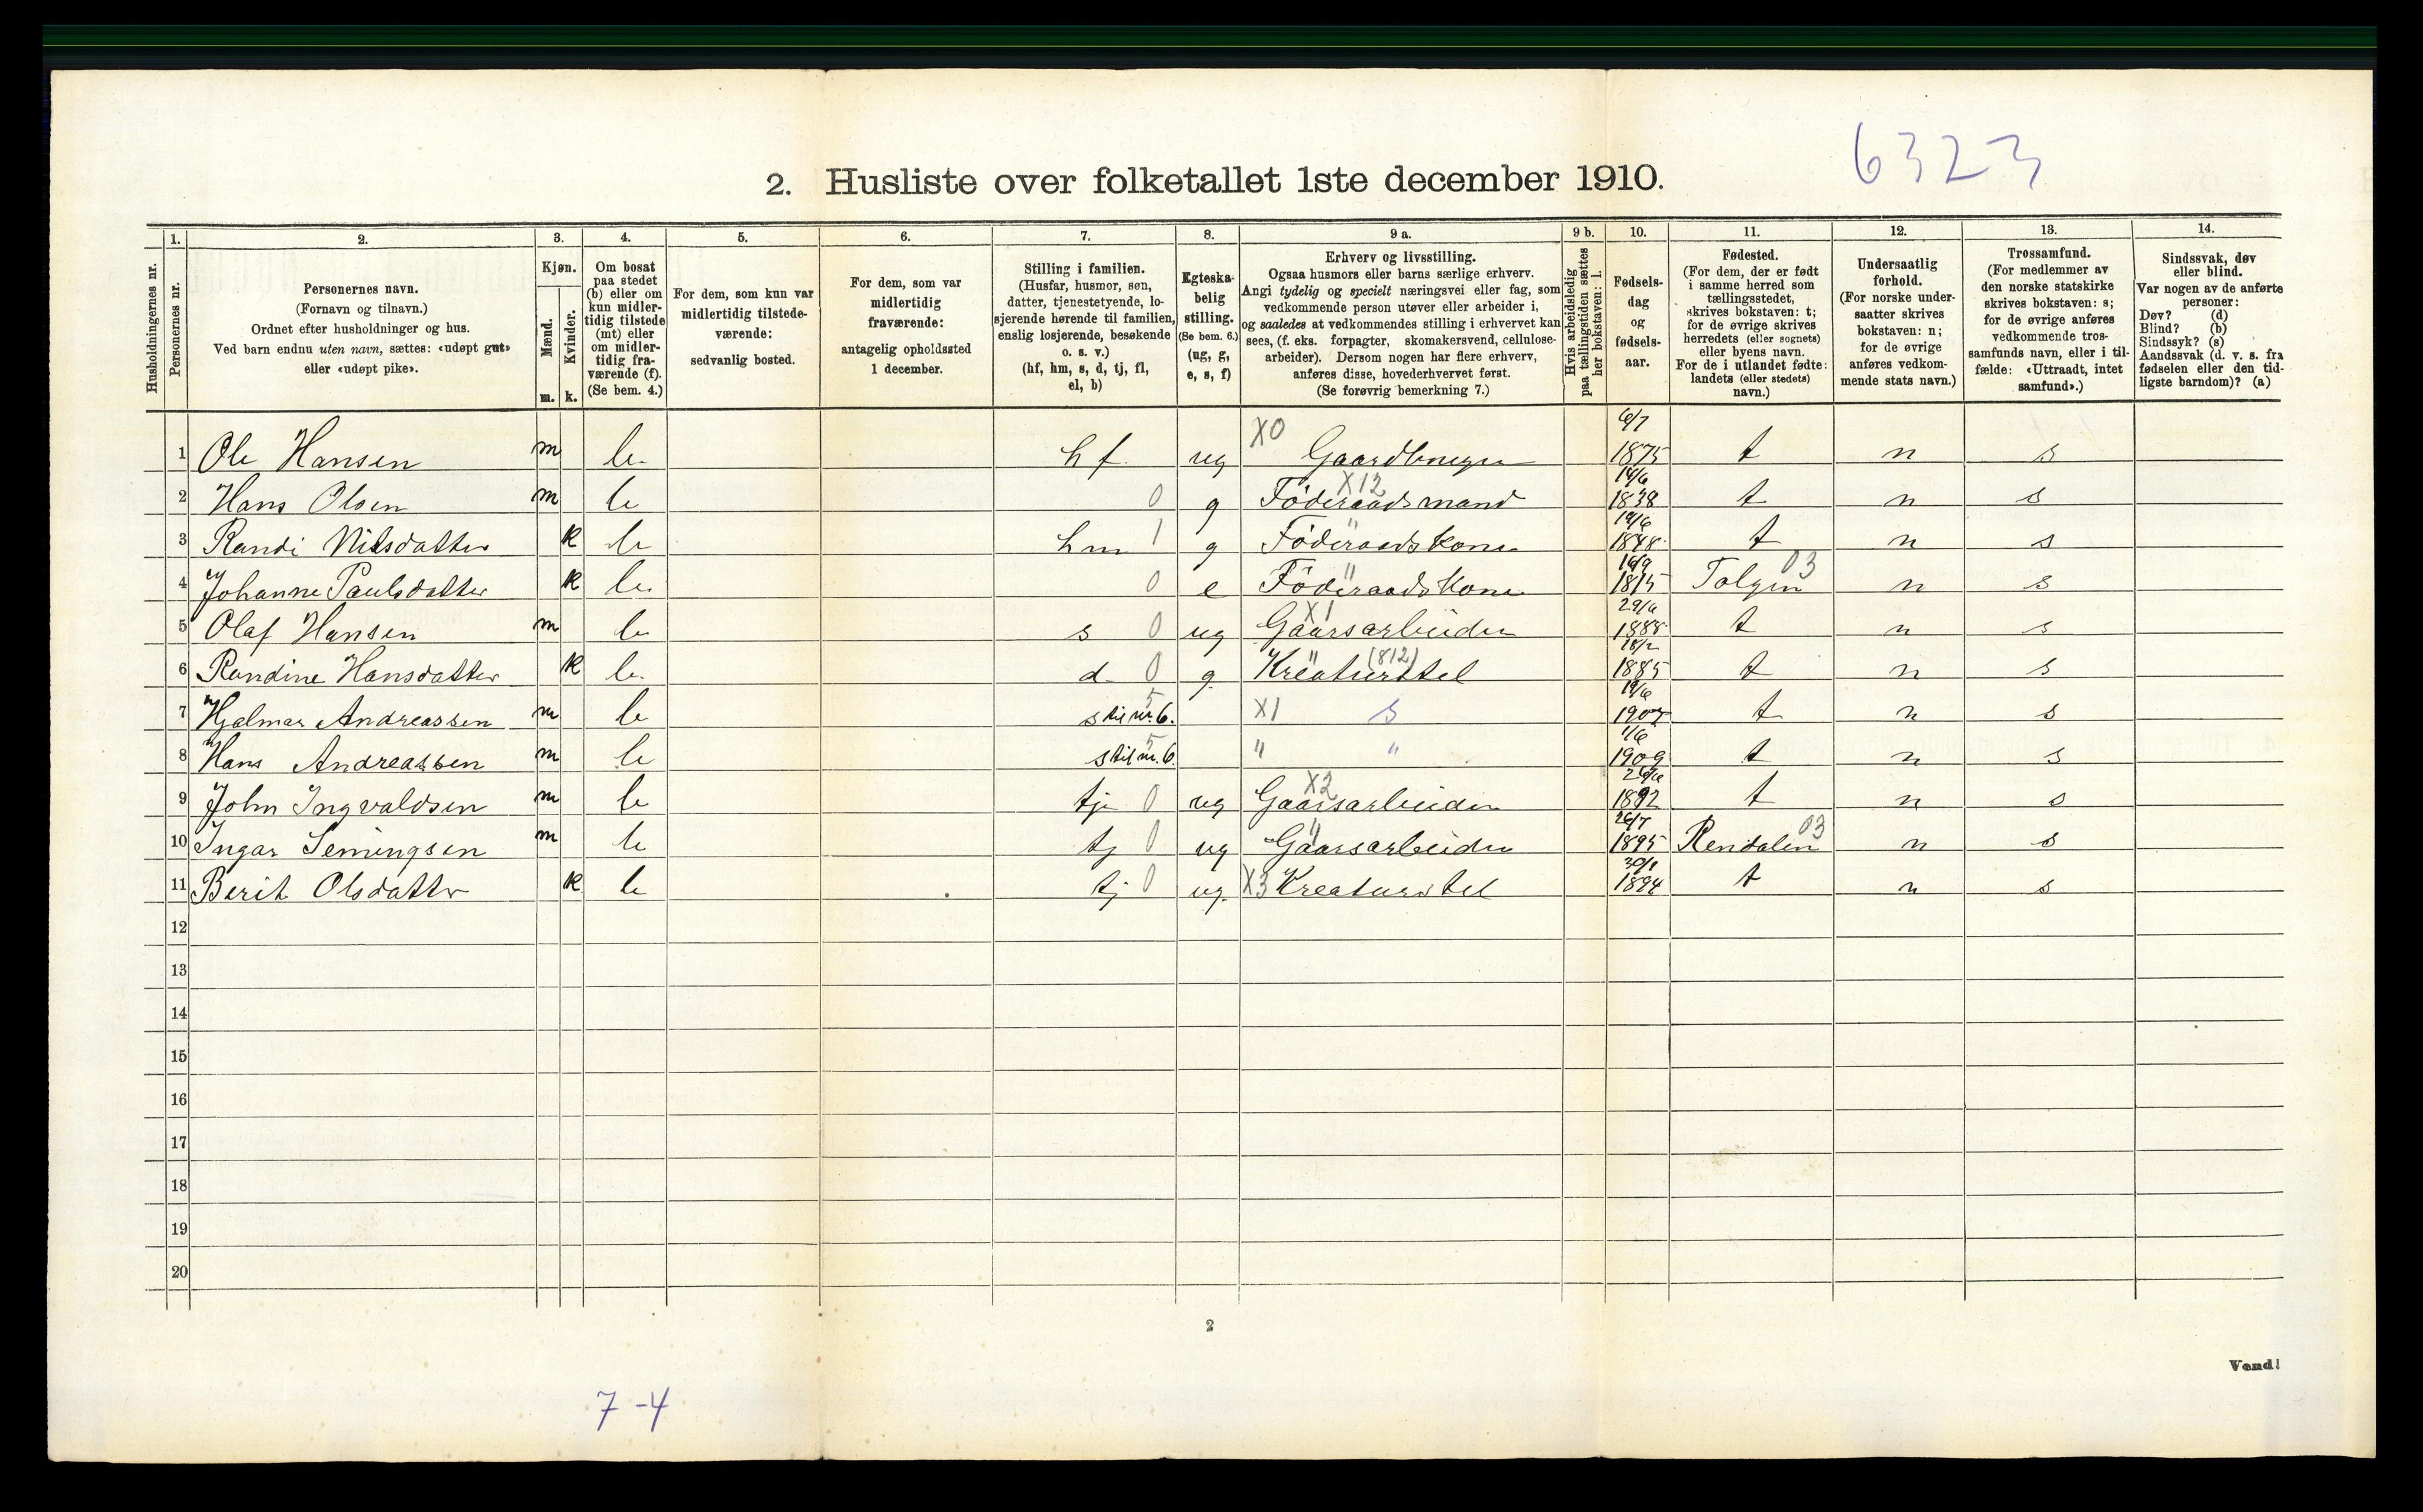 6323
2. Husliste over folketallet 1ste december 1910.
Husholdningernes nr.
1. Personernes nr.
2. Personernes navn.
(Fornavn og tilnavn.)
Ordnet efter husholdninger og hus.
Ved barn endnu uten navn, sættes: «udøpt gut»
eller «udøpt pike».
3. Kjøn.
Mænd. m.
Kvinder. k.
4. Om bosat
paa stedet
(b) eller om
kun midler-
tidig tilstede
(mt) eller
om midler-
tidig fra-
værende (f).
(Se bem. 4.)
5. For dem, som kun var
midlertidig tilstede-
værende:
sedvanlig bosted.
6. For dem, som var
midlertidig
fraværende:
antagelig opholdssted
1 december.
7. Stilling i familien.
(Husfar, husmor, søn,
datter, tjenestetyende, lo-
sjerende hørende til familien,
enslig losjerende, besøkende
o. s. v.)
(hf, hm, s, d, tj, fl,
el, b)
8. Egteska-
belig
stilling.
(Se bem. 6.)
(ug, g,
e, s, f)
9 a. Erhverv og livsstilling.
Ogsaa husmors eller barns særlige erhverv.
Angi tydelig og specielt næringsvei eller fag, som
vedkommende person utøver eller arbeider i,
og saaledes at vedkommendes stilling i erhvervet kan
sees, (f. eks. forpagter, skomakersvend, cellulose-
arbeider). Dersom nogen har flere erhverv,
anføres disse, hovederhvervet først.
(Se forøvrig bemerkning 7.)
9 b. Hvis arbeidsledig
paa tællingstiden sættes
her bokstaven: l.
10. Fødsels-
dag
og
fødsels-
aar.
11. Fødested.
(For dem, der er født
i samme herred som
tællingsstedet,
skrives bokstaven: t;
for de øvrige skrives
herredets (eller sognets)
eller byens navn.
For de i utlandet fødte:
landets (eller stedets)
navn.)
12. Undersaatlig
forhold.
(For norske under-
saatter skrives
bokstaven: n;
for de øvrige
anføres vedkom-
mende stats navn.)
13. Trossamfund.
(For medlemmer av
den norske statskirke
skrives bokstaven: s;
for de øvrige anføres
vedkommende tros-
samfunds navn, eller i til-
fælde: «Uttraadt, intet
samfund».)
14. Sindssvak, døv
eller blind.
Var nogen av de anførte
personer:
Døv? (d)
Blind? (b)
Sindssyk? (s)
Aandssvak (d. v. s. fra
fødselen eller den tid-
ligste barndom)? (a)
1 Ole Hansen m b. hf. ug X0 Gaardbruger 1875 t n s
2 Hans Olsen m b 0 g X12 Føderaadsmand 14/6 1838 t n s
3 Randi Nilsdatter k b hm 1 g " Føderaadskone 19/6 1848 t n s
4 Johanne Paulsdatter k b. 0 e " Føderaadskone 16/9 1815 Tolgen 03 n s
5 Olaf Hansen m b s 0 ug X1 Gaarsarbeider 29/6 1888 t n s
6 Randine Hansdatter k b. d 0 g. " (812) Kreaturstel 18/2 1885 t n s
7 Hjalmar Andreassen m b s til nr. 6. 5 X1 s 19/6 1907 t n s
8 Hans Andreassen m b s til nr. 6. 5 " " 1/6 1909 t n s
9 John Ingvaldsen m b tj 0 ug X2 Gaarsarbeider 1892 t n s
10 Ingar Semingsen m b tj 0 ug " Gaarsarbeider 26/7 1895 Rendalen 03 n s
11 Berit Olsdatter k b tj 0 ug. X3 Kreaturstel 1894 t n s
12
13
14
15
16
17
18
19
20
2
Vend!
7-4